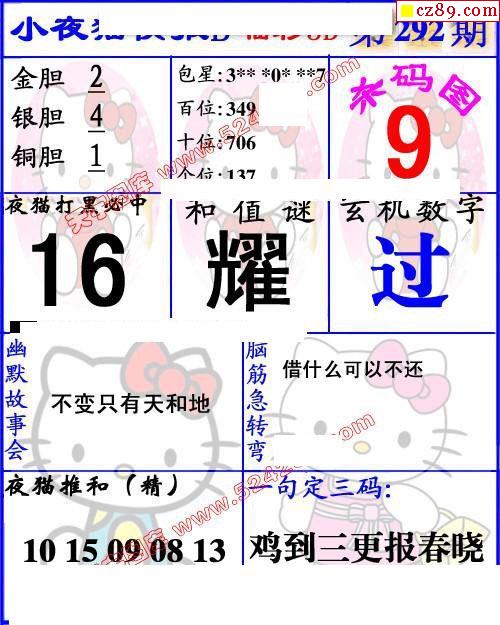 cz89.com
小夜猫 D 福彩3D 第292期
金胆 2
银胆 4
铜胆 1
包星:3** *0* **7
百位:349
十位:706
个位:137
杀码图
9
夜猫打黑必中
16
和值谜
耀
玄机数字
过
幽默故事会
不变只有天和地
脑筋急转弯
借什么可以不还
夜猫推和(精)
10 15 09 08 13
一句定三码:
鸡到三更报春晓